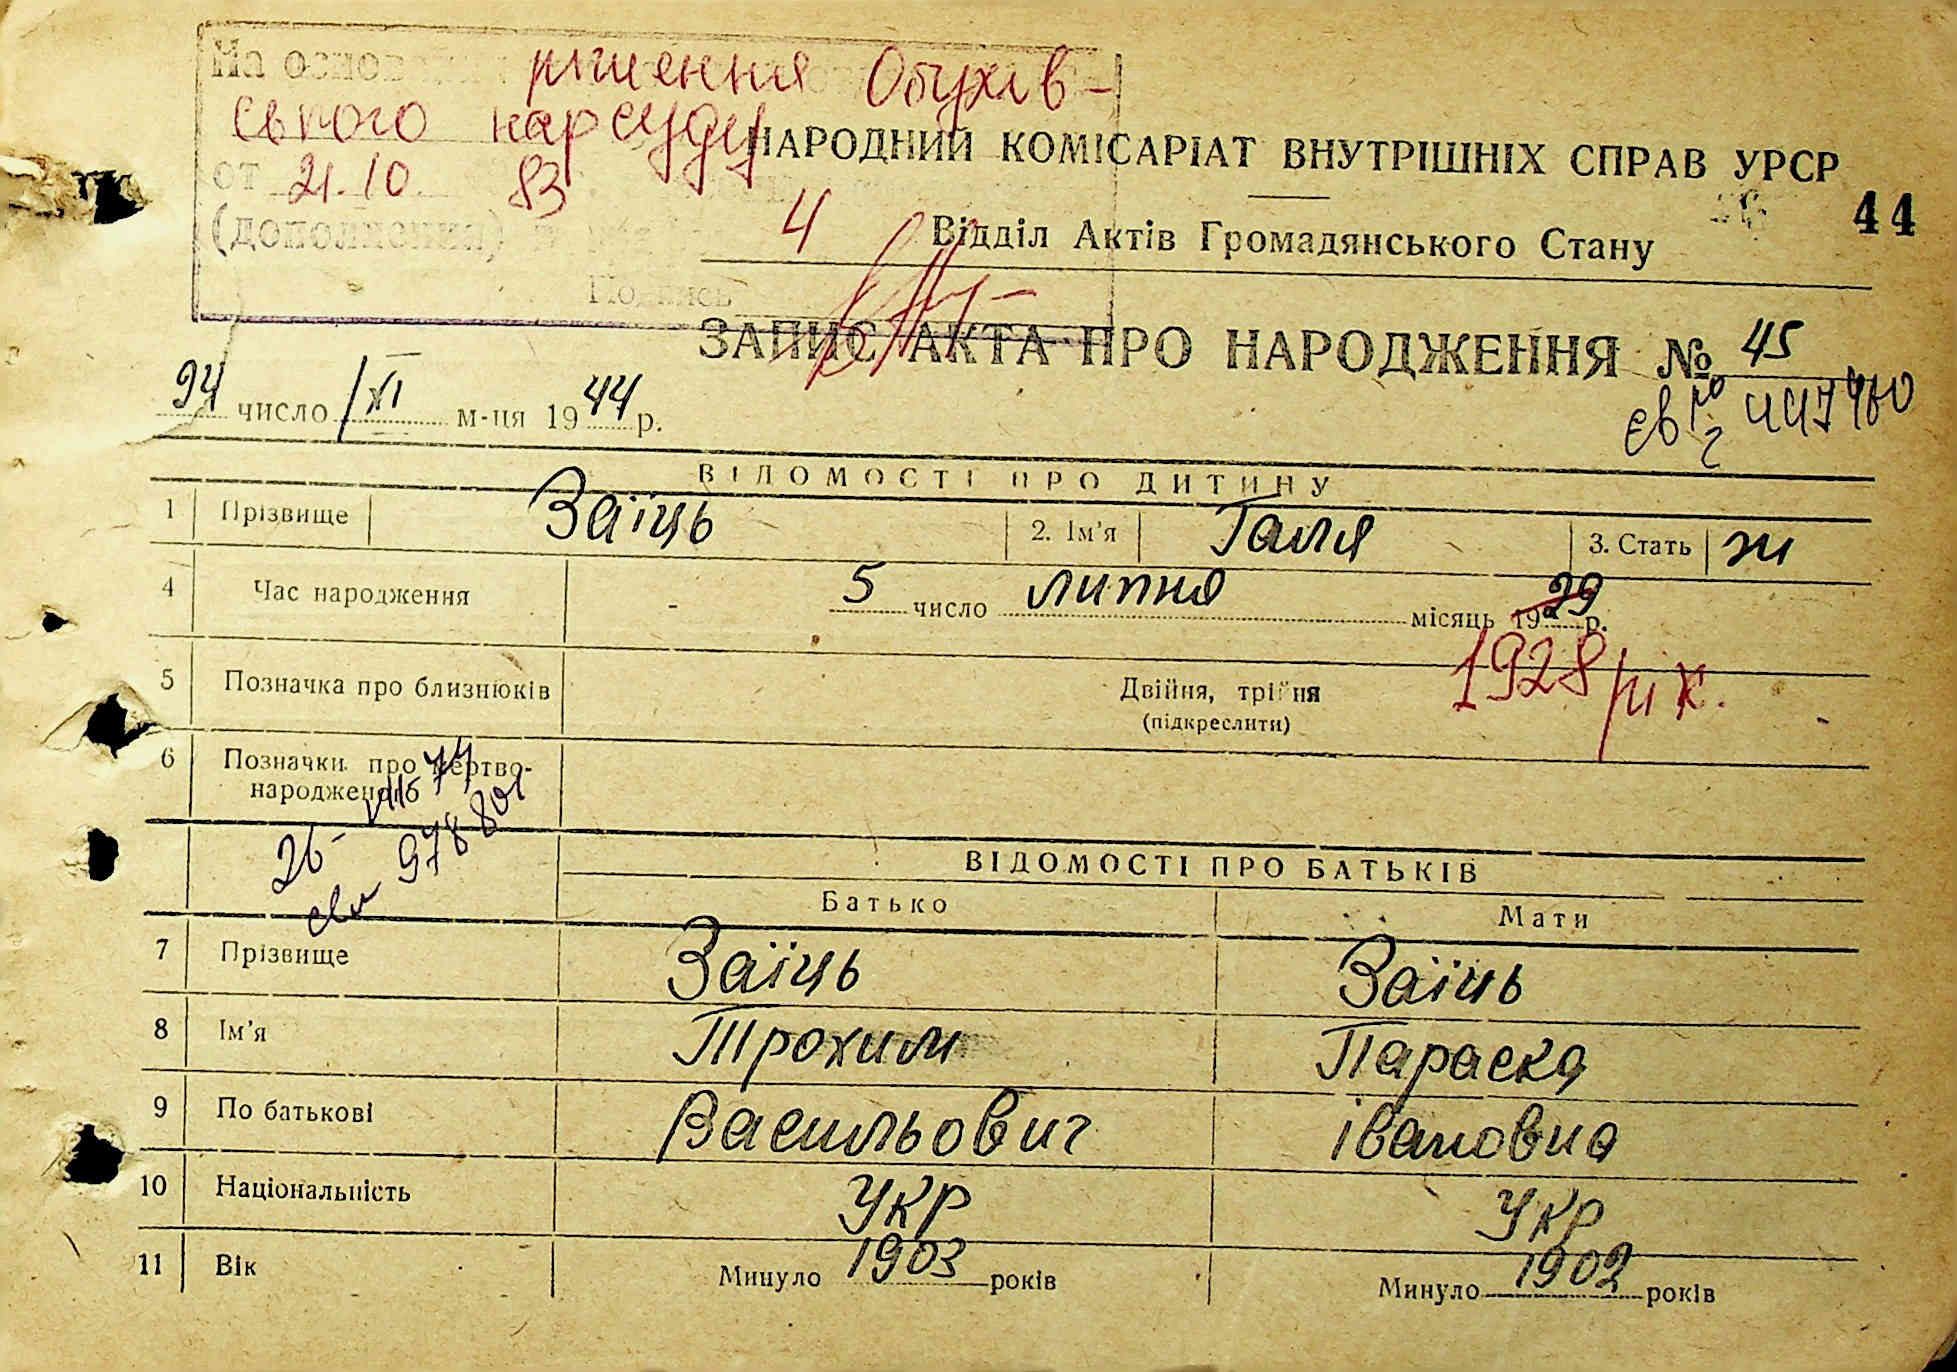 На основ рішення Обухів-
ського нарсуду
от 21.10 83
(дополнения) 4
Подпись
НАРОДНИЙ КОМІСАРІАТ ВНУТРІШНІХ СПРАВ УРСР
44
Відділ Актів Громадянського Стану
ЗАПИС АКТА ПРО НАРОДЖЕННЯ № 45
24 число XI м-ця 1944 р.
ВІДОМОСТІ ПРО ДИТИНУ
1 Прізвище Заїць 2. Ім'я Галя 3. Стать ж
4 Час народження 5 число липня місяць 1929 р.
1928 рік.
5 Позначка про близнюків Двійня, трійня
(підкреслити)
6 Позначки про мертво-
народженого
26- VIII 74
978801
ВІДОМОСТІ ПРО БАТЬКІВ
Батько Мати
7 Прізвище Заїць Заїць
8 Ім'я Трохим Параска
9 По батькові Васильович Івановна
10 Національність Укр Укр
11 Вік Минуло 1903 років Минуло 1902 років